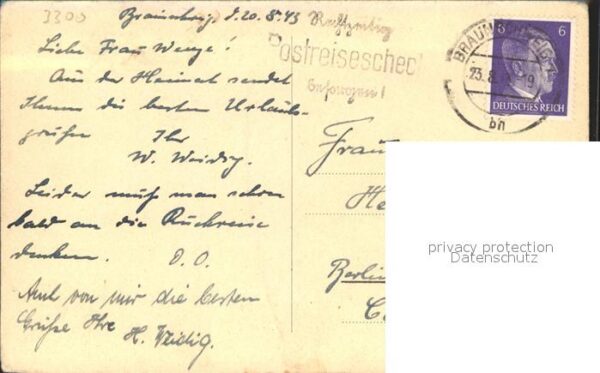 3300
Braunschweig, d. 20.8.43
Liebe Frau Wenze!
Aus der Heimat sendet
Ihnen die besten Urlaubs-
grüße Ihr
W. Weidig.
Leider muß man schon
bald an die Rückreise
denken. D. O.
Auch von mir die besten
Grüße Ihre H. Weidig.
Rechtzeitig
Postreisescheck
besorgen!
BRAUNSCHWEIG
23.8.
bh
6 6
DEUTSCHES REICH
Frau
He
Berlin
C
privacy protection
Datenschutz